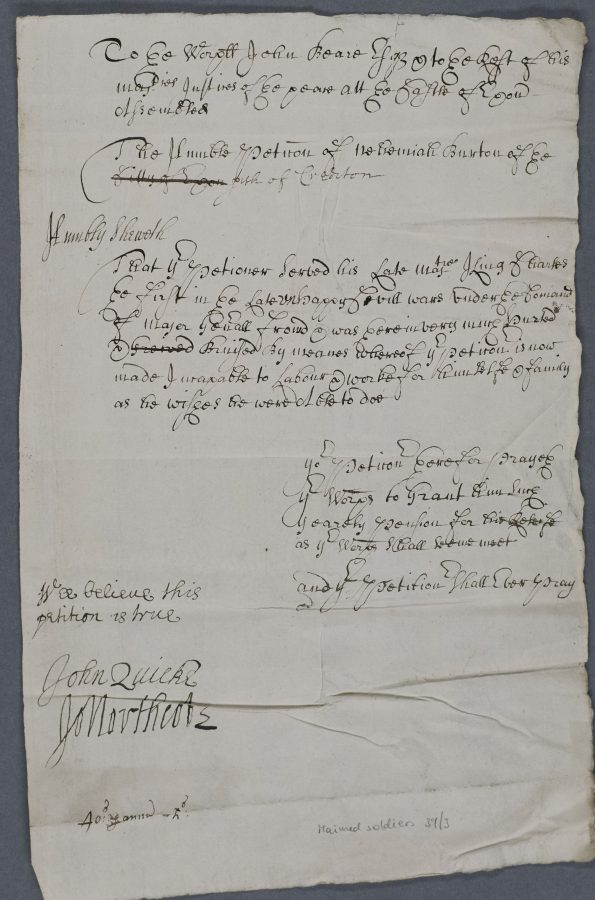 To the Worpll John Beare Esqr & to the Rest of his
maties Justices of the peace att the Castle of Exon
Assembled
The Humble Peticon of Nehemiah Burton of the
Citty of Exon psh of Crediton
Humbly Sheweth
That yr Petioner Served his Late matie King Charles
the first in the Late vnhappy Sevill wars vnder the Comand
of major Generall & was therein very much hurted
& Bruised By meanes whereof yr Peticonr is now
made Incapable to Labour & worke for himselfe & family
as he wishes he were Able to doe
yor Peticonr therefore prayeth
yr Worps to Grant him such
yearely Pension for his
as yr Worps shall seeme meet
and yr Petitionr shall Ever pray
Wee believe this
petition is true
John Quicke
Jo Northcote
40s p annum
Maimed soldiers 39/3